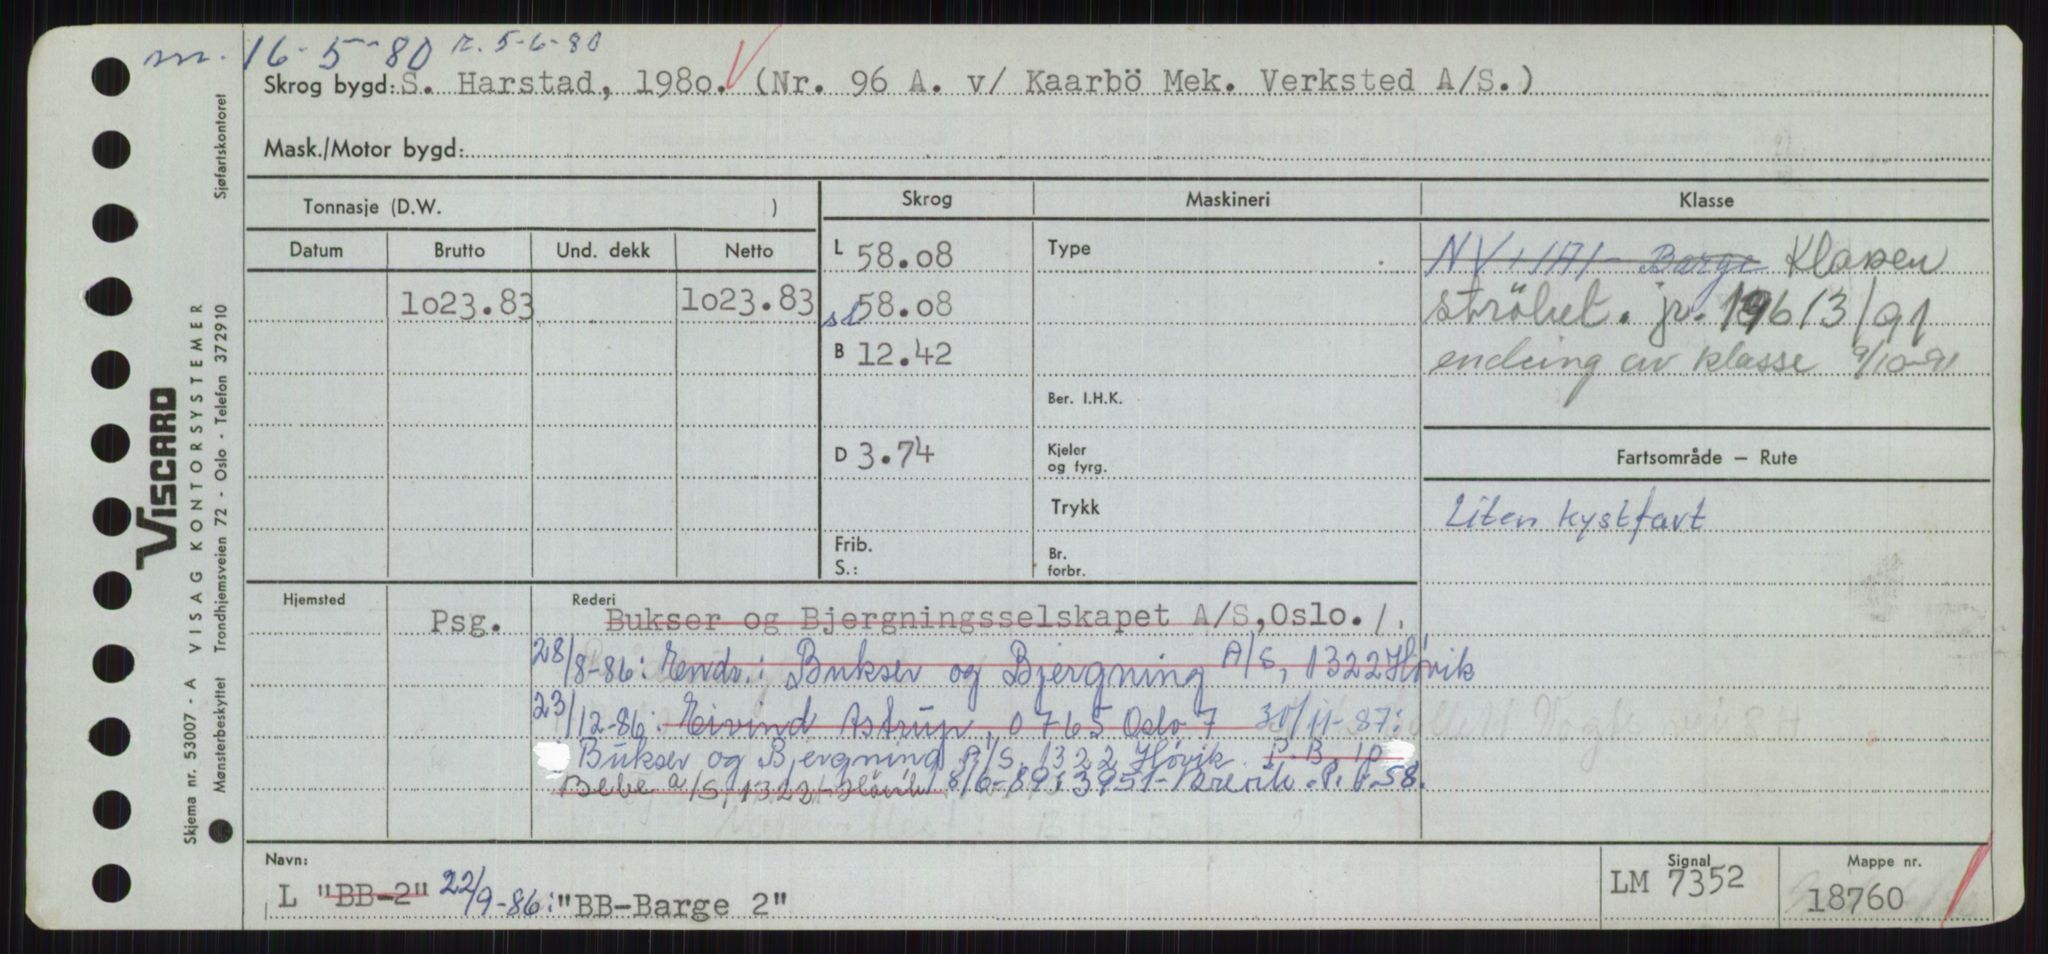 m. 16-5-80 r. 5-6-80
Skrog bygd: S. Harstad, 1980. (Nr. 96 A. v/ Kaarbö Mek. Verksted A/S.)
Mask./Motor bygd:
Tonnasje (D.W. )
Skrog Maskineri Klasse
Datum Brutto Und. dekk Netto
1o23.83 1o23.83
L 58.o8
sl 58.o8
B 12.42
D 3.74
Frib.
S.:
Type
Ber. I.H.K.
Kjeler
og fyrg.
Trykk
Br.
forbr.
Barge Klassen
ströket. jr. 196/3/91
endring av klasse 9/10-91
Fartsområde – Rute
Liten kystfart
Hjemsted Rederi
Psg. Bukser og Bjergningsselskapet A/S, Oslo. /.
28/8-86: Endr.: Bukser og Bjergning A/S, 1322 Høvik
23/12-86: Eivind Astrup, 0765 Oslo 7 30/11-87:
Bukser og Bjergning A/S, 1322 Høvik P.B.
Bebe a/s, 1322 Hövik 8/6-89: 3951 Brevik. P. 58.
Navn:
L "BB-2" 22/9-86: "BB-Barge 2"
Signal
LM 7352
Mappe nr.
18760
VISCARD
Skjema nr. 53007 - A VISAG KONTORSYSTEMER
Mønsterbeskyttet Trondhjemsveien 72 - Oslo - Telefon 372910 Sjøfartskontoret